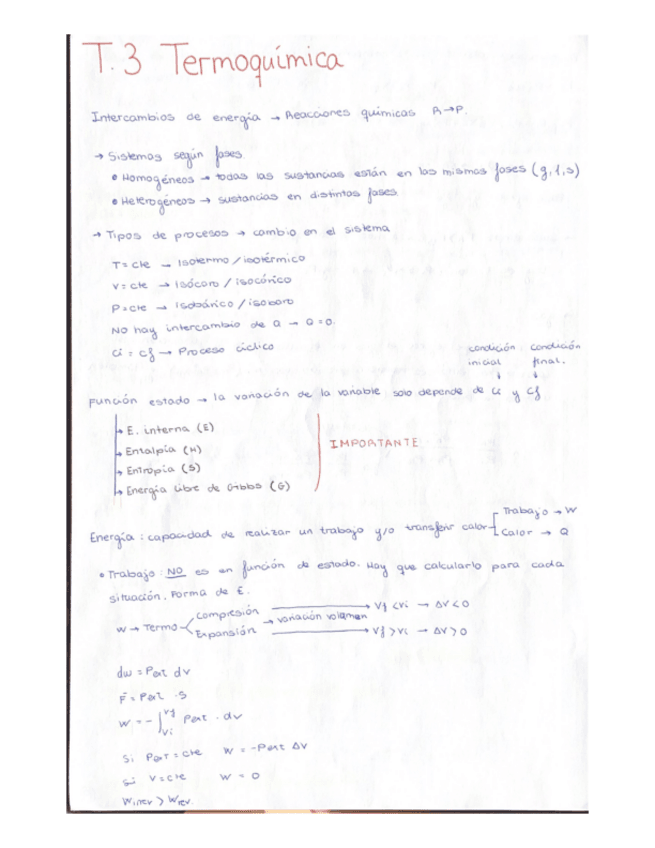 T.3 Termoquímica
Intercambios de energía → Reacciones químicas R→P.
→ Sistemas según fases
• Homogéneos → todas las sustancias están en las mismas fases (g,l,s)
• Heterogéneos → sustancias en distintas fases
→ Tipos de procesos → cambio en el sistema
T= cte → Isotermo / isotérmico
V= cte → Isócoro / isocórico
P= cte → Isobárico / isobaro
No hay intercambio de Q → Q=0.
Ci = Cf → Proceso cíclico
condición inicial ↓ condición final. ↓
Función estado → la variación de la variable solo depende de Ci y Cf
→ E. interna (E)
→ Entalpía (H)
→ Entropía (S)
→ Energía Libre de Gibbs (G)
IMPORTANTE
Energía : capacidad de realizar un trabajo y/o transferir calor
Trabajo → W
Calor → Q
• Trabajo : NO es en función de estado. Hay que calcularlo para cada
situación. Forma de E.
W → Termo
Compresión
Expansión
→ variación volumen
→ Vf < Vi → ΔV < 0
→ Vf > Vi → ΔV > 0
dw = Pext dv
F = Pext · S
W = - ∫ Vf Vi Pext · dv
Si Pext = cte W = -Pext ΔV
Si V = cte W = 0
Wirrev > Wrev.